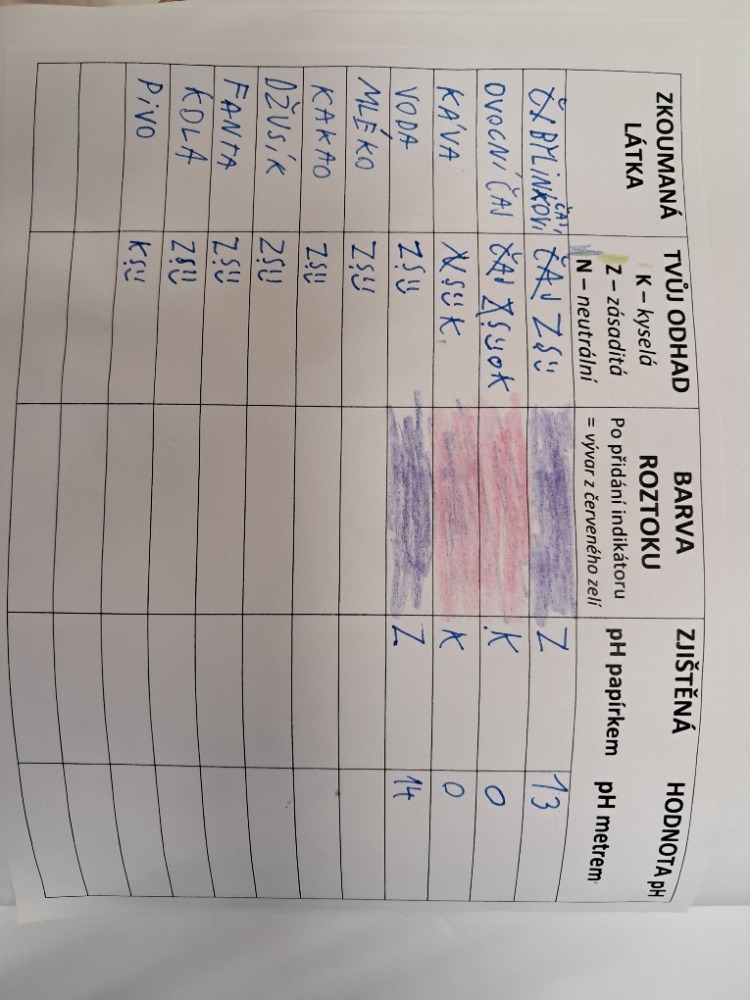 ZKOUMANÁ LÁTKA
TVŮJ ODHAD
K – kyselá
Z – zásaditá
N – neutrální
BARVA ROZTOKU
Po přidání indikátoru
= vývar z červeného zelí
ZJIŠTĚNÁ HODNOTA pH
pH papírkem pH metrem
BYLINKOVÍ ČAJ Z Z 13
OVOCNÍ ČAJ K K 0
KÁVA K K 0
VODA Z Z 14
MLÉKO Z
KAKAO Z
DŽUSÍK Z
FANTA Z
KOLA Z
PIVO K